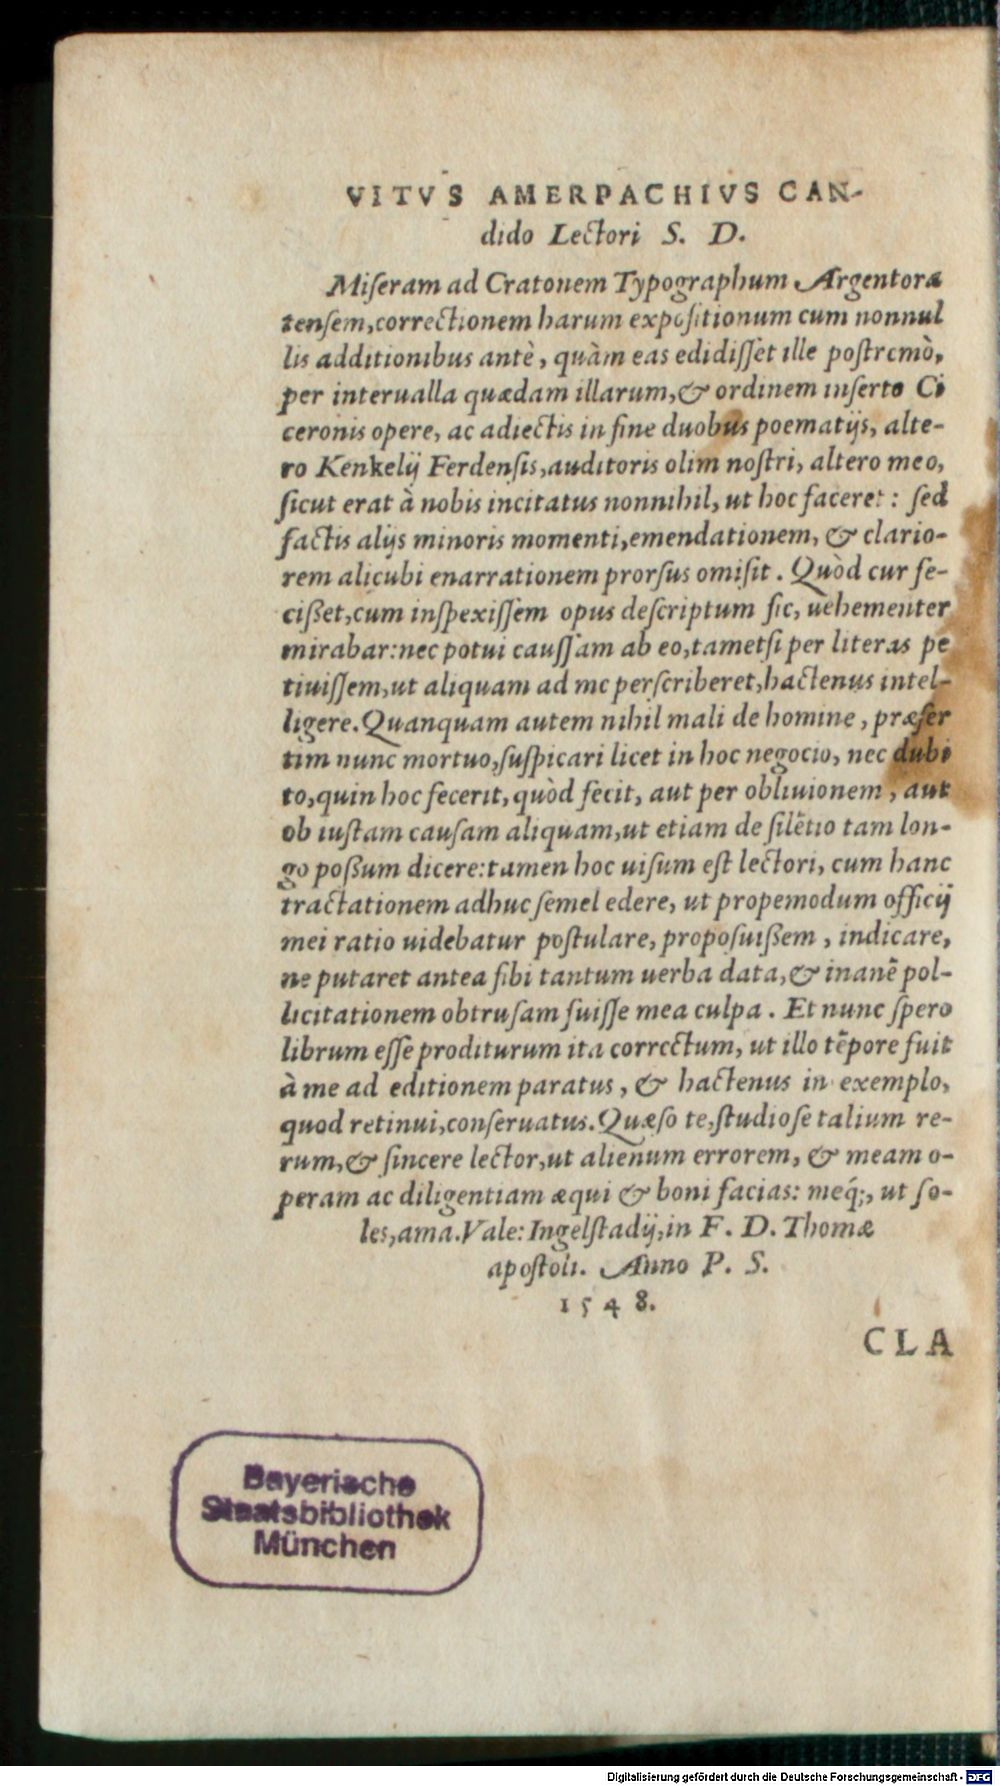 VITVS AMERPACHIVS CAN-
dido Lectori S. D.
Miſeram ad Cratonem Typographum Argentora
tenſem,correctionem harum expoſitionum cum nonnul
lis additionibus antè, quàm eas edidiſſet ille poſtremò,
per interualla quædam illarum,& ordinem inſerto Ci
ceronis opere, ac adiectis in fine duobus poematijs, alte-
ro Kenkelij Ferdenſis,auditoris olim noſtri, altero meo,
ſicut erat à nobis incitatus nonnihil, ut hoc faceret: ſed
factis alijs minoris momenti,emendationem, & clario-
rem alicubi enarrationem prorſus omiſit. Quòd cur fe-
cißet,cum inſpexiſſem opus deſcriptum ſic, uehementer
mirabar:nec potui cauſſam ab eo,tametſi per literas pe
tiuiſſem,ut aliquam ad me perſcriberet,hactenus intel-
ligere.Quanquam autem nihil mali de homine, præſer
tim nunc mortuo,ſuſpicari licet in hoc negocio, nec dubi
to,quin hoc fecerit,quòd fecit, aut per obliuionem, aut
ob iuſtam cauſam aliquam,ut etiam de ſilẽtio tam lon-
go poßum dicere:tamen hoc uiſum eſt lectori, cum hanc
tractationem adhuc ſemel edere, ut propemodum officij
mei ratio uidebatur poſtulare, propoſuißem, indicare,
ne putaret antea ſibi tantum uerba data,& inanẽ pol-
licitationem obtruſam fuiſſe mea culpa. Et nunc ſpero
librum eſſe proditurum ita correctum, ut illo tẽpore fuit
à me ad editionem paratus, & hactenus in exemplo,
quod retinui,conſeruatus.Quæſo te,ſtudioſe talium re-
rum,& ſincere lector,ut alienum errorem, & meam o-
peram ac diligentiam æqui & boni facias: meq́;, ut ſo-
les,ama.Vale:Ingelſtadij,in F. D. Thomæ
apoſtoli. Anno P. S.
1548.
CLA
Bayerische
Staatsbibliothek
München
Digitalisierung gefördert durch die Deutsche Forschungsgemeinschaft - DFG